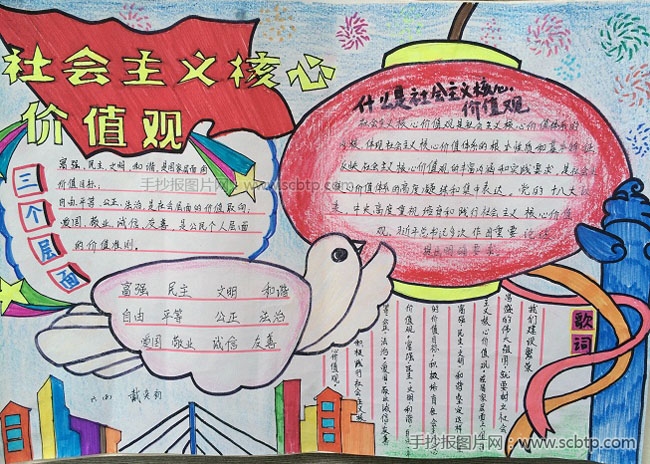 社会主义核心
价值观
三个层面
富强、民主、文明、和谐,是国家层面的
价值目标。
自由、平等、公正、法治是社会层面的价值取向。
爱国、敬业、诚信、友善,是公民个人层面
的价值准则。
什么是社会主义核心
价值观
社会主义核心价值观是社会主义核心价值体系的
核,体现社会主义核心价值体系的根本性质和基本特征,
反映社会主义核心价值体系的丰富内涵和实践要求,是社会主
价值体系的高度凝练和集中表达。党的十八大以
来,中央高度重视培育和践行社会主义核心价值
观。习近平总书记多次作出重要论述
富强 民主 文明 和谐
自由 平等 公正 法治
爱国 敬业 诚信 友善
歌词
我们建设繁荣
富强的伟大强国,就要树立社会
主义核心价值观,在国家层面上,以
富强、民主、文明、和谐来定这样
手抄报图片网:www.scbtp.com
手抄报图片网:www.scbtp.com